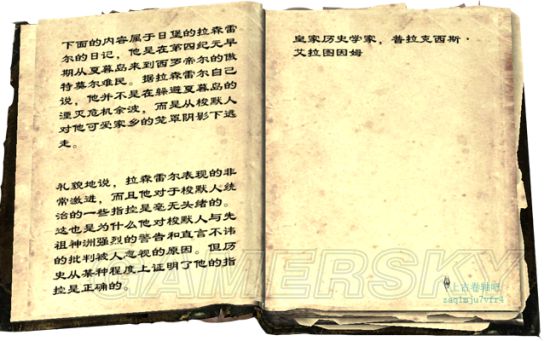 下面的内容属于日堡的拉森雷
尔的日记，他是在第四纪元早
期从夏暮岛来到西罗帝尔的傲
特莫尔难民。据拉森雷尔自己
说，他并不是在躲避夏暮岛的
湮灭危机余波，而是从梭默人
对他可爱家乡的笼罩阴影下逃
走。
礼貌地说，拉森雷尔表现的非
常激进，而且他对于梭默人统
治的一些指控是毫无头绪的。
这也是为什么他对梭默人与先
祖神洲强烈的警告和直言不讳
的批判被人忽视的原因。但历
史从某种程度上证明了他的指
控是正确的。
皇家历史学家，普拉克西斯·
艾拉图因姆
GAMERSKY
上古卷轴吧
zaqimju7vfr4